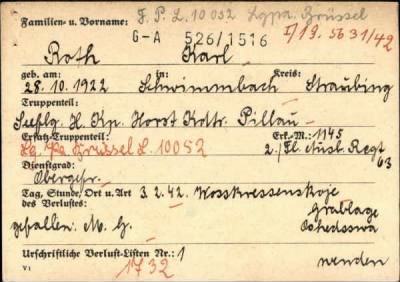 F. P. L. 10052 Lgpa. Brüssel
Familien- u. Vorname:
G-A 526/1516 I/19. 5631/42
Roth Karl
geb. am: in: Kreis:
28. 10. 1922 Schwimmbach Straubing
Truppenteil:
H. Kp. Horst Kdtr. Pillau
Ersatz-Truppenteil: Erk.-M.: 1145
Lg. Pa. Brüssel L. 10052 2./Fl. Ausb. Regt 63
Dienstgrad:
Obergefr.
Tag, Stunde, Ort u. Art 3. 2. 42. Wosskressenskoje
des Verlustes: Grablage
gefallen. M. G. Oshedsswa
Urschriftliche Verlust-Listen Nr.: 1
V1 1732 wenden